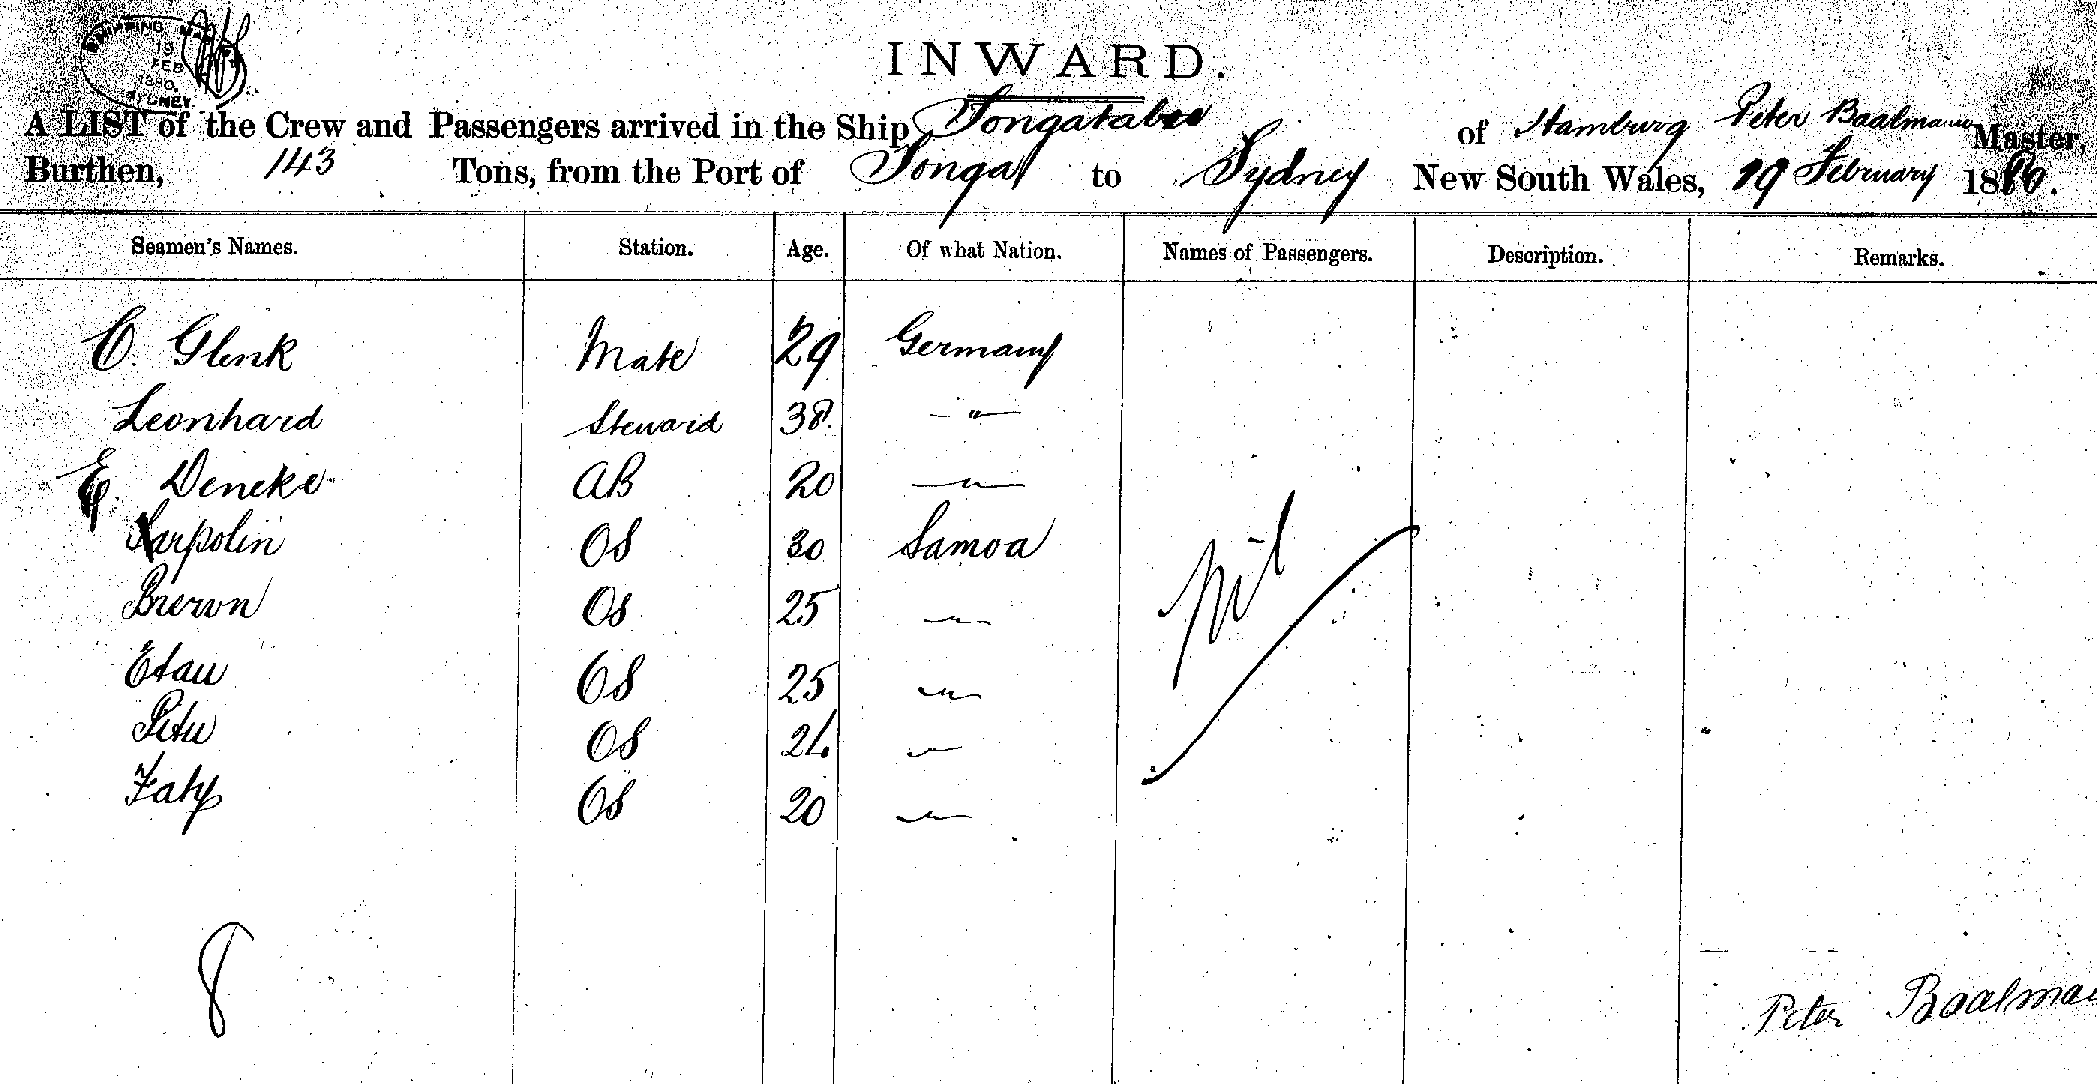 SHIPPING MASTER
19
FEB
1880
SYDNEY
INWARD.
A LIST of the Crew and Passengers arrived in the Ship Tongatabu of Hamburg Peter Baalmann Master,
Burthen, 143 Tons, from the Port of Tonga to Sydney New South Wales, 19 February 1880.
Seamen's Names. Station. Age. Of what Nation. Names of Passengers. Description. Remarks.
C. Glenk Mate 29 Germany
Leonhard Steward 38. — " —
E. Deneke AB 20 — " —
Karpolin OS 30 Samoa
Brown OS 25 — " —
Etau OS 25 — " —
Pitu OS 21. — " —
OS 20 — " —
Nil
8
Peter Baalman